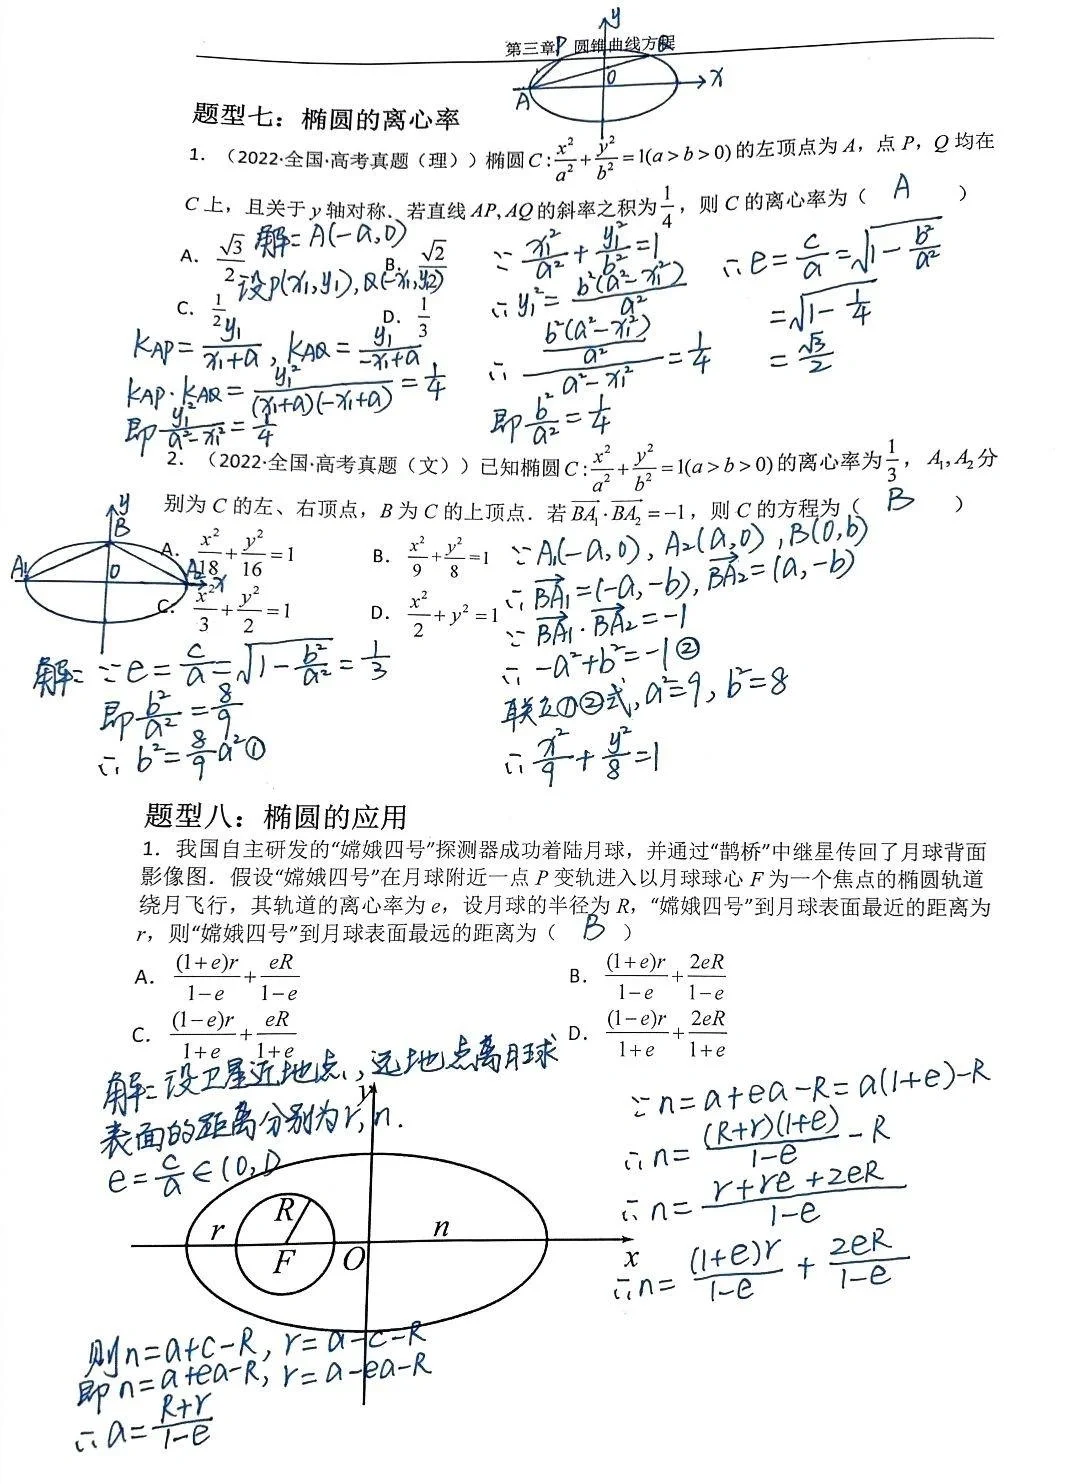 第三章 圆锥曲线方程
y
P
Q
O
x
A
题型七：椭圆的离心率
1．（2022·全国·高考真题（理））椭圆C:x²/a²+y²/b²=1(a>b>0)的左顶点为A，点P，Q均在
C上，且关于y轴对称．若直线AP,AQ的斜率之积为1/4，则C的离心率为（ A ）
A．√3/2
B．√2/2
C．1/2
D．1/3
解：A(-a,0)
设P(x₁,y₁),Q(-x₁,y₂)
K_AP=y₁/(x₁+a), K_AQ=y₁/(-x₁+a)
K_AP·K_AQ=y₁²/((x₁+a)(-x₁+a))=1/4
即y₁²/(a²-x₁²)=1/4
∵x₁²/a²+y₁²/b²=1
∴y₁²=b²(a²-x₁²)/a²
∴(b²(a²-x₁²)/a²)/(a²-x₁²)=1/4
即b²/a²=1/4
∴e=c/a=√(1-b²/a²)
=√(1-1/4)
=√3/2
2．（2022·全国·高考真题（文））已知椭圆C:x²/a²+y²/b²=1(a>b>0)的离心率为1/3，A₁,A₂分
别为C的左、右顶点，B为C的上顶点．若BA₁·BA₂=-1，则C的方程为（ B ）
A．x²/18+y²/16=1
B．x²/9+y²/8=1
C．x²/3+y²/2=1
D．x²/2+y²=1
y
B
A₁
O
A₂
x
解：∵e=c/a=√(1-b²/a²)=1/3
即b²/a²=8/9
∴b²=8/9a²①
∵A₁(-a,0), A₂(a,0), B(0,b)
∴BA₁=(-a,-b), BA₂=(a,-b)
∵BA₁·BA₂=-1
∴-a²+b²=-1②
联立①②式,a²=9, b²=8
∴x²/9+y²/8=1
题型八：椭圆的应用
1．我国自主研发的“嫦娥四号”探测器成功着陆月球，并通过“鹊桥”中继星传回了月球背面
影像图．假设“嫦娥四号”在月球附近一点P变轨进入以月球球心F为一个焦点的椭圆轨道
绕月飞行，其轨道的离心率为e，设月球的半径为R，“嫦娥四号”到月球表面最近的距离为
r，则“嫦娥四号”到月球表面最远的距离为（ B ）
A．(1+e)r/(1-e)+eR/(1-e)
B．(1+e)r/(1-e)+2eR/(1-e)
C．(1-e)r/(1+e)+eR/(1+e)
D．(1-e)r/(1+e)+2eR/(1+e)
解：设卫星近地点、远地点离月球
表面的距离分别为r,n.
e=c/a∈(0,1)
y
R
r
n
F
O
x
则n=a+c-R, r=a-c-R
即n=a+ea-R, r=a-ea-R
∴a=(R+r)/(1-e)
∵n=a+ea-R=a(1+e)-R
∴n=(R+r)(1+e)/(1-e)-R
∴n=(r+re+2eR)/(1-e)
∴n=(1+e)r/(1-e)+2eR/(1-e)